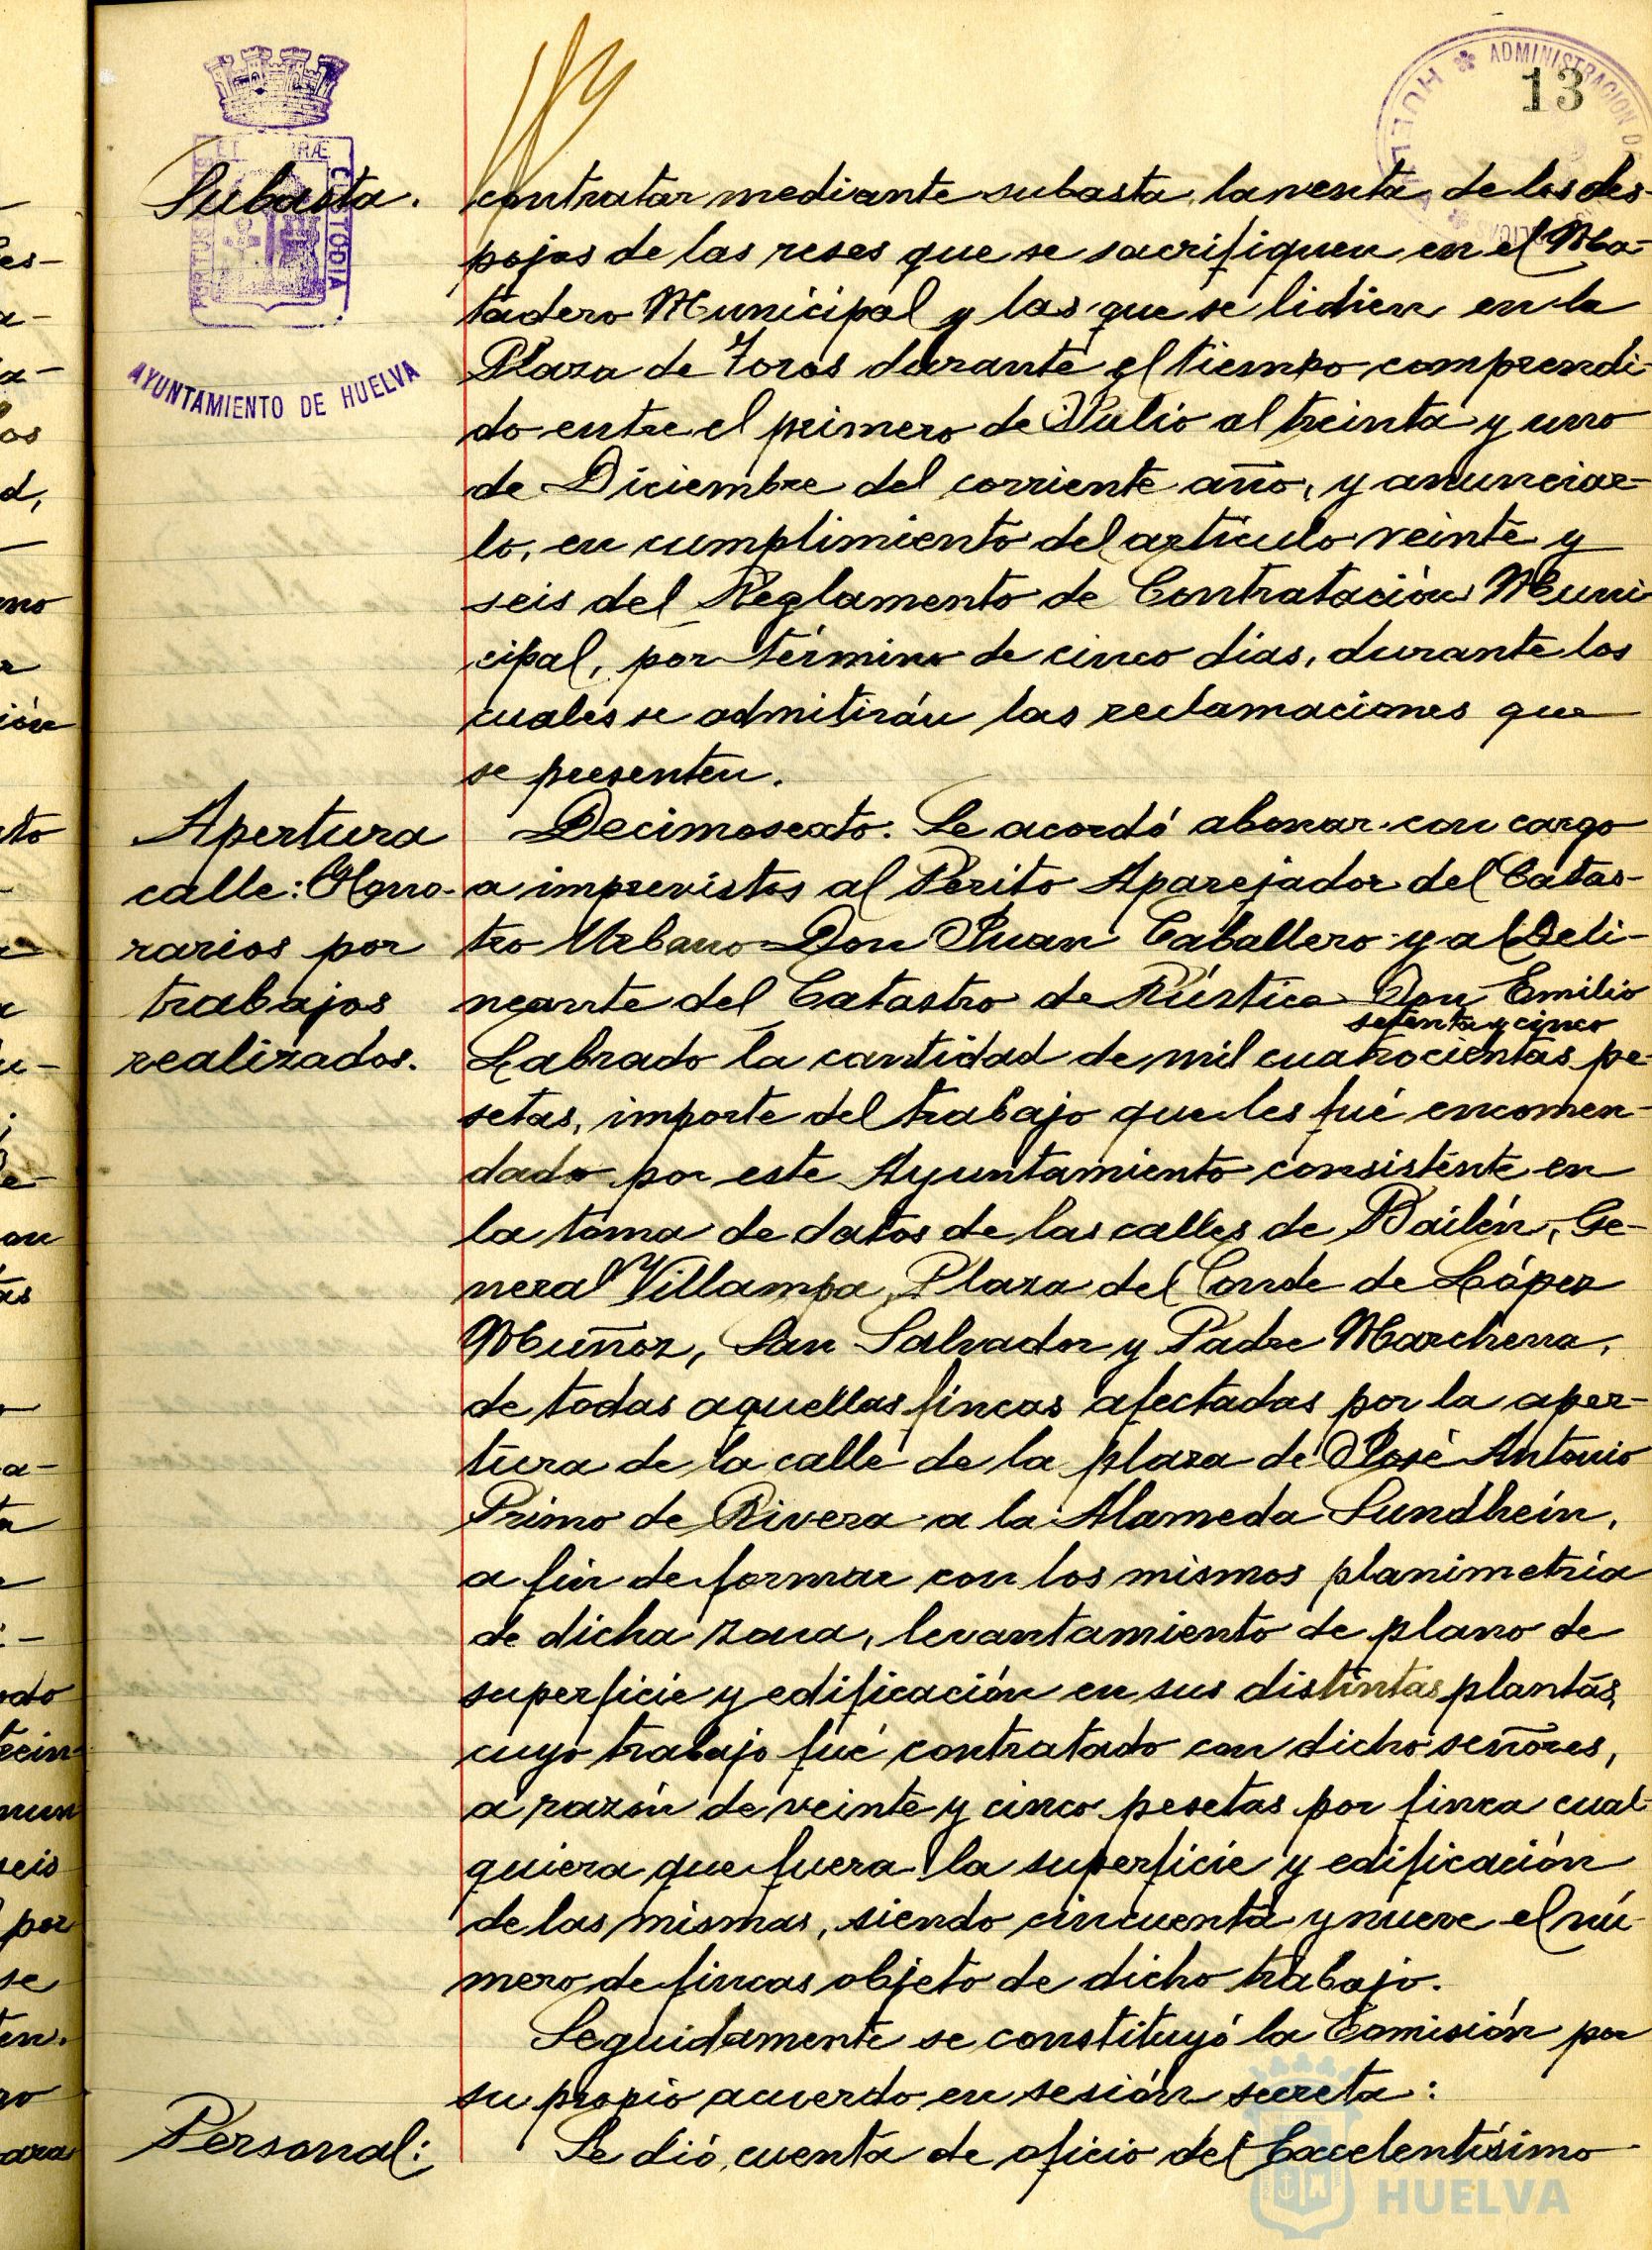 13
ADMINISTRACION D
HUELVA
ET TERRÆ CUSTODIA
PORTUS
AYUNTAMIENTO DE HUELVA
Subasta.
contratar mediante subasta, la venta de los des-
pojos de las reses que se sacrifiquen en el Ma-
tadero Municipal y las que se lidien en la
Plaza de Toros durante el tiempo comprendi-
do entre el primero de Julio al treinta y uno
de Diciembre del corriente año, y anunciar-
lo, en cumplimiento del articulo veinte y
seis del Reglamento de Contratación Muni
cipal, por término de cinco dias, durante los
cuales se admitirán las reclamaciones que
se presenten.
Apertura
calle: Hono-
rarios por
trabajos
realizados.
Decimosexto. Se acordó abonar con cargo
a imprevistos al Perito Aparejador del Catas-
tro Urbano Don Juan Caballero y al Deli-
neante del Catastro de Rústica Don Emilio
setenta y cinco
Labrado la cantidad de mil cuatrocientas pe-
setas, importe del trabajo que les fué encomen-
dado por este Ayuntamiento consistente en
la toma de datos de las calles de Bailén, Ge-
neral Villampa, Plaza del Conde de López
Muñoz, San Salvador y Padre Marchena,
de todas aquellas fincas afectadas por la aper-
tura de la calle de la plaza de José Antonio
Primo de Rivera a la Alameda Sundhein,
a fin de formar con los mismos planimetria
de dicha zona, levantamiento de plano de
superficie y edificación en sus distintas plantas,
cuyo trabajo fué contratado con dicho señores,
a razón de veinte y cinco pesetas por finca cual-
quiera que fuera la superficie y edificación
de las mismas, siendo cincuenta y nueve el nú-
mero de fincas objeto de dicho trabajo.
Seguidamente se constituyó la Comisión por
su propio acuerdo en sesión secreta:
Personal:
Se dió cuenta de oficio del Excelentísimo
HUELVA